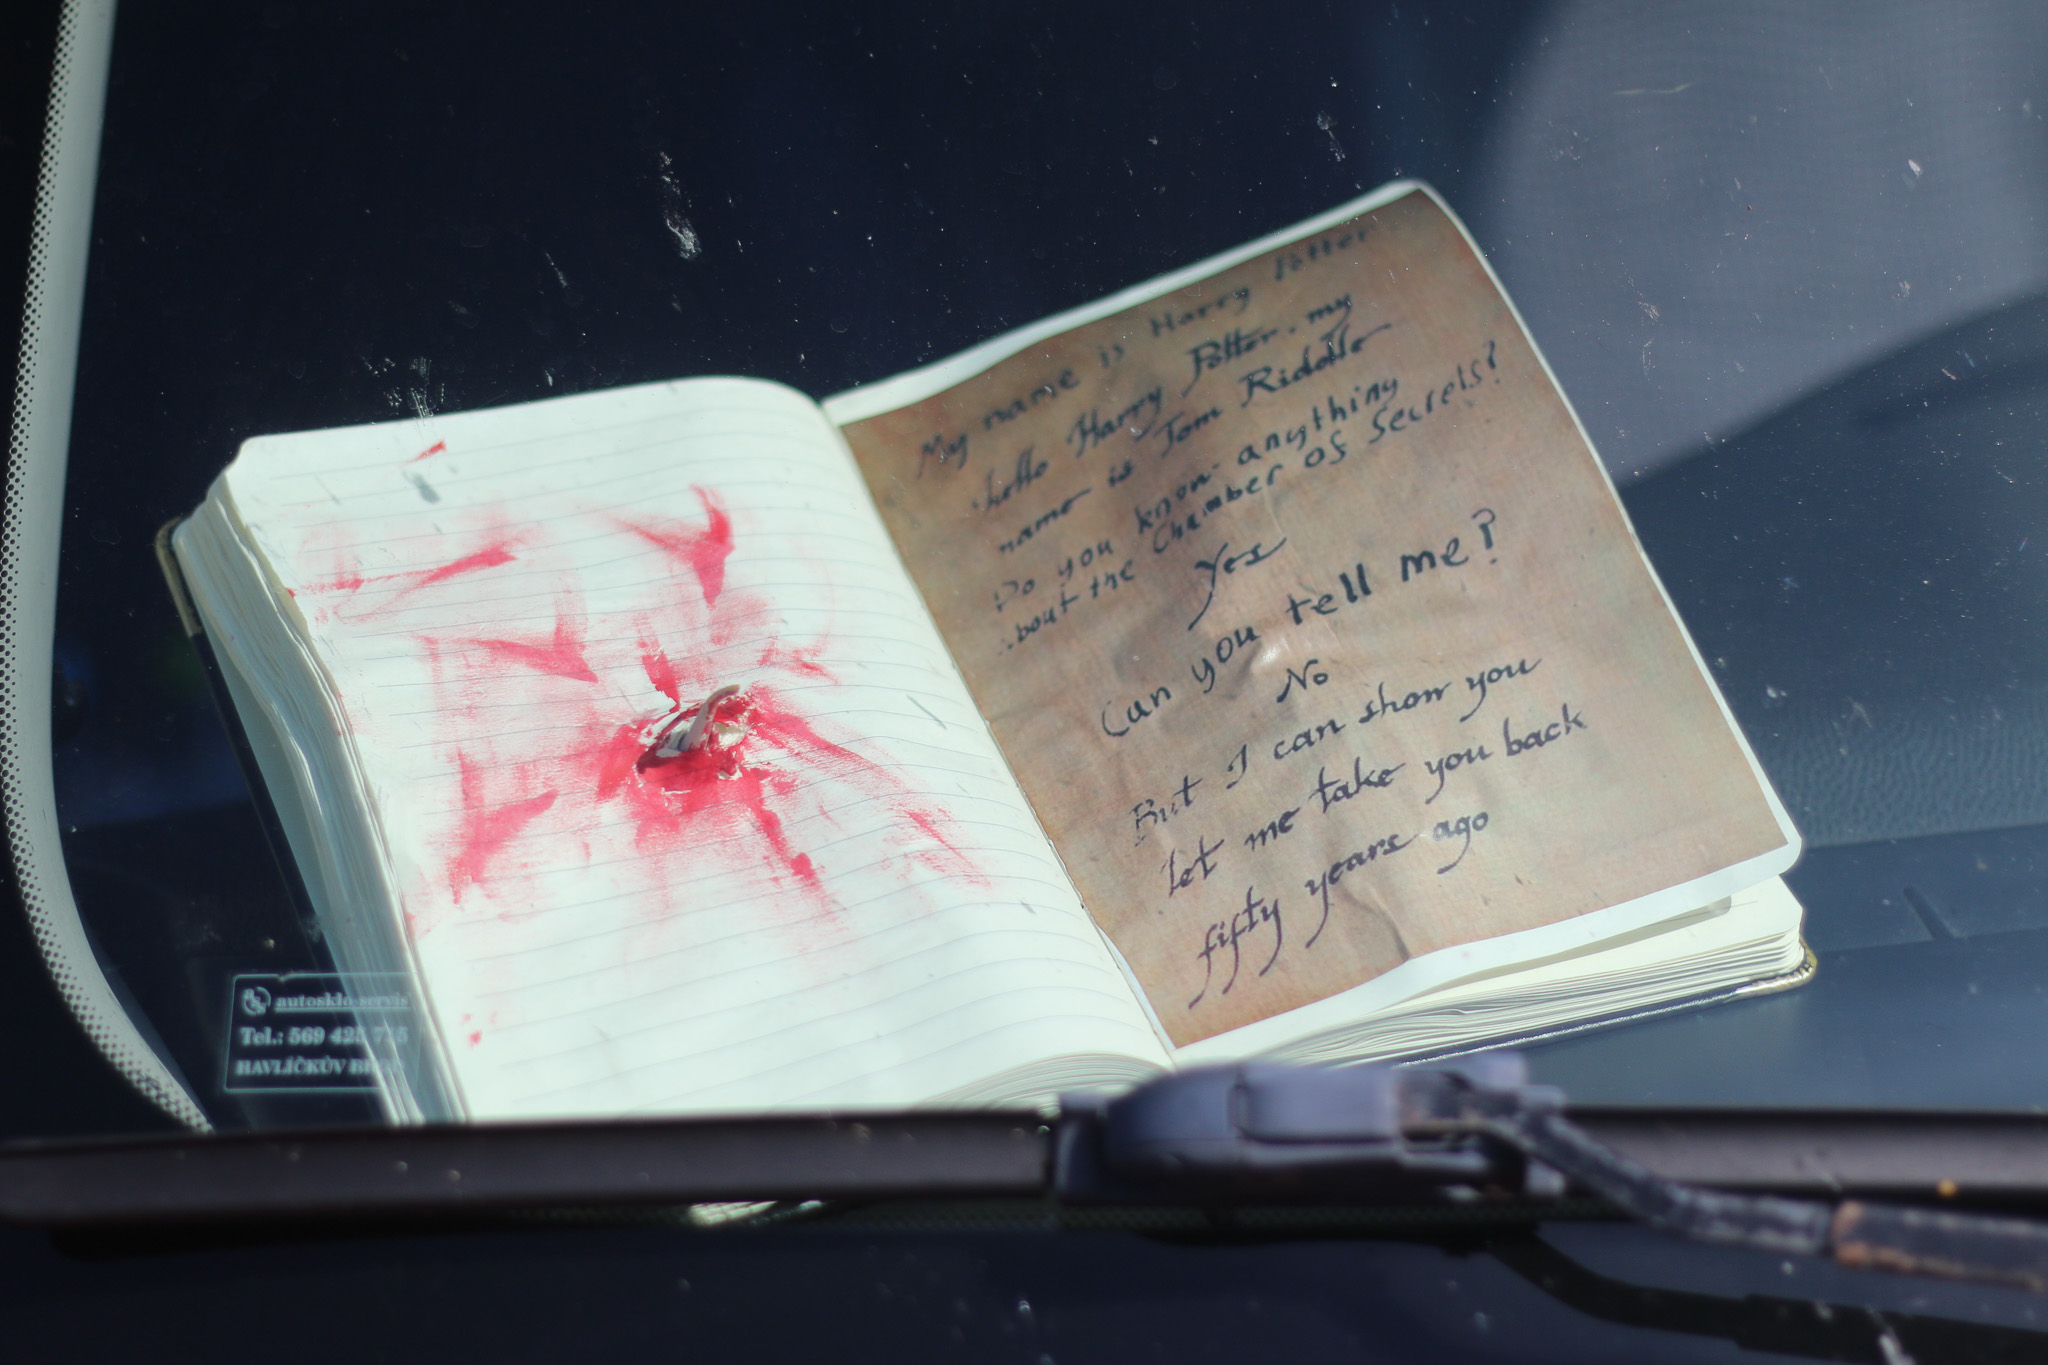 My name is Harry Potter
hello Harry Potter, my
name is Tom Riddle
Do you know anything
about the Chamber of Secrets?
Yes
Can you tell me?
No
But I can show you
let me take you back
fifty years ago
autosklo-servis
Tel.: 569 425 715
HAVLÍČKŮV